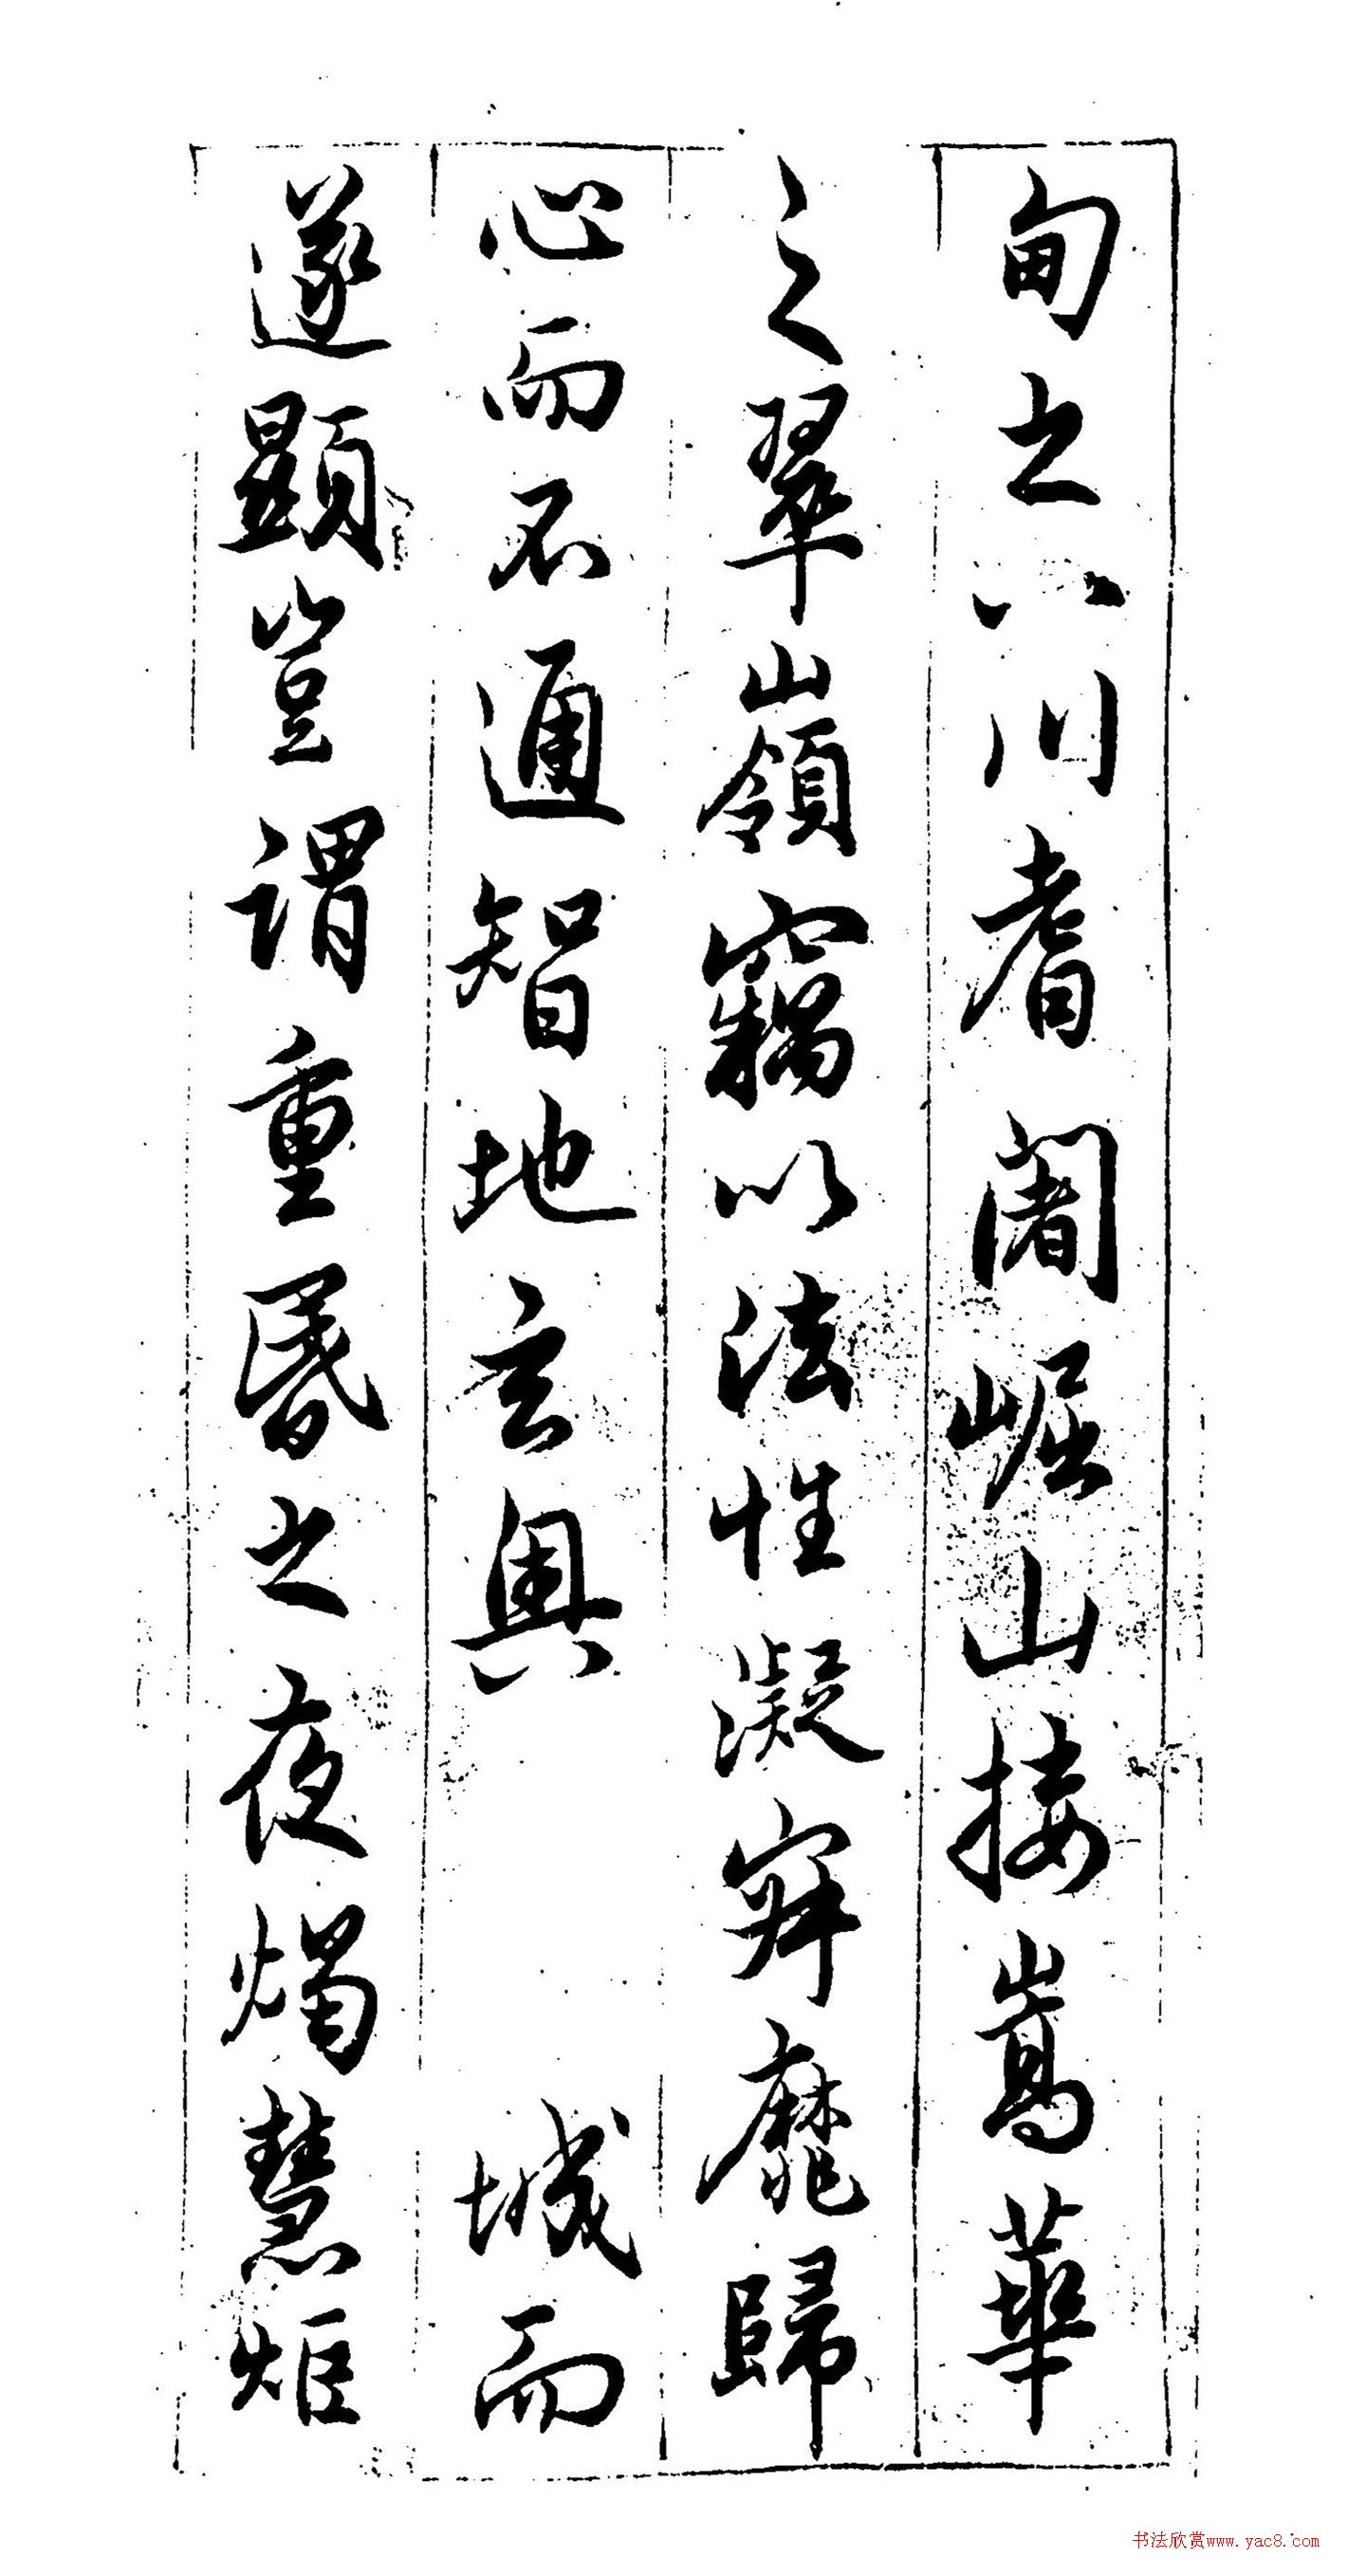 甸之八川耆闍崛山接嵩華
之翠嶺竊以法性凝寂靡歸
心而不通智地玄奧 城而
遂顯豈謂重昏之夜燭慧炬
书法欣赏www.yac8.com